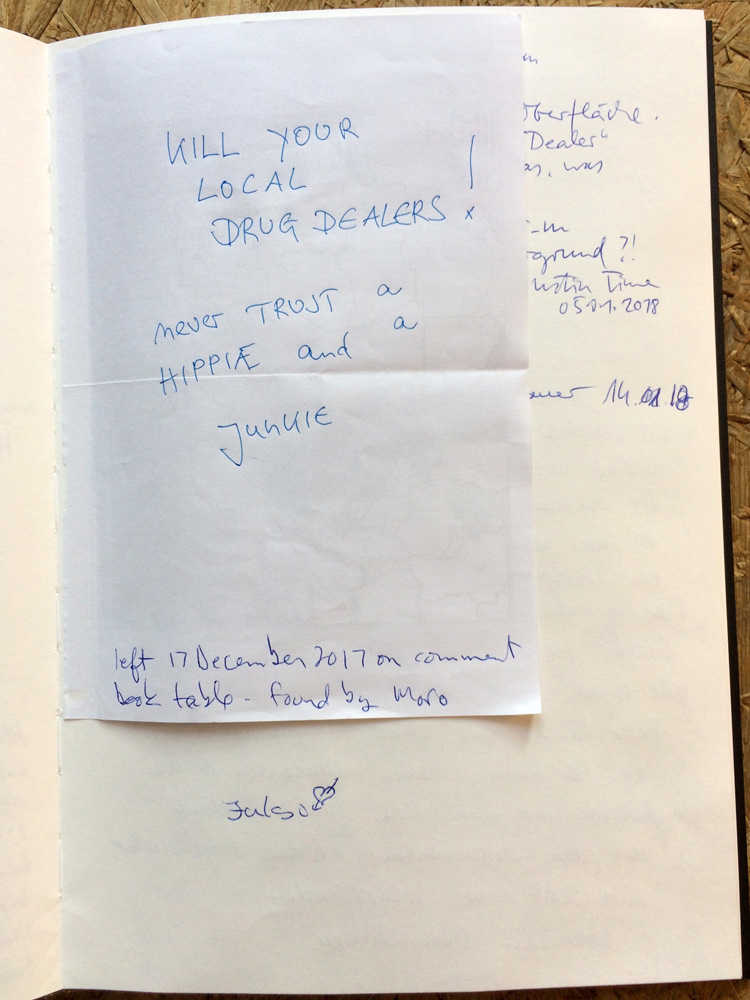 KILL YOUR
LOCAL
DRUG DEALERS !
never TRUST a
HIPPIE and a
JUNKIE
left 17 December 2017 on comment
book table - found by Moro
Oberfläche.
Dealer"
as, was
?!
Time
05.01.2018
14.01.18